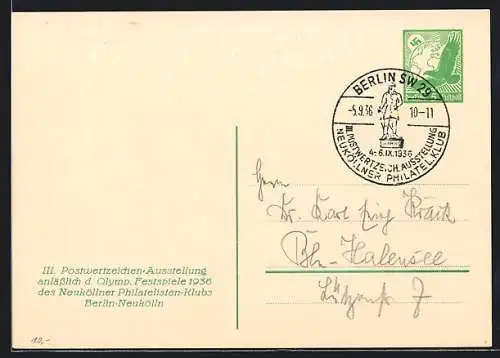 BERLIN SW 29
-5.9.36 10-11
4.-6.IX.1936
III. POSTWERTZEICH. AUSSTELLUNG
NEUKÖLLNER PHILATEL. KLUB
Herrn
Dr. Karl
Bln-Halensee
7
III. Postwertzeichen-Ausstellung
anläßlich d. Olymp. Festspiele 1936
des Neuköllner Philatelisten-Klubs
Berlin-Neukölln
10,-